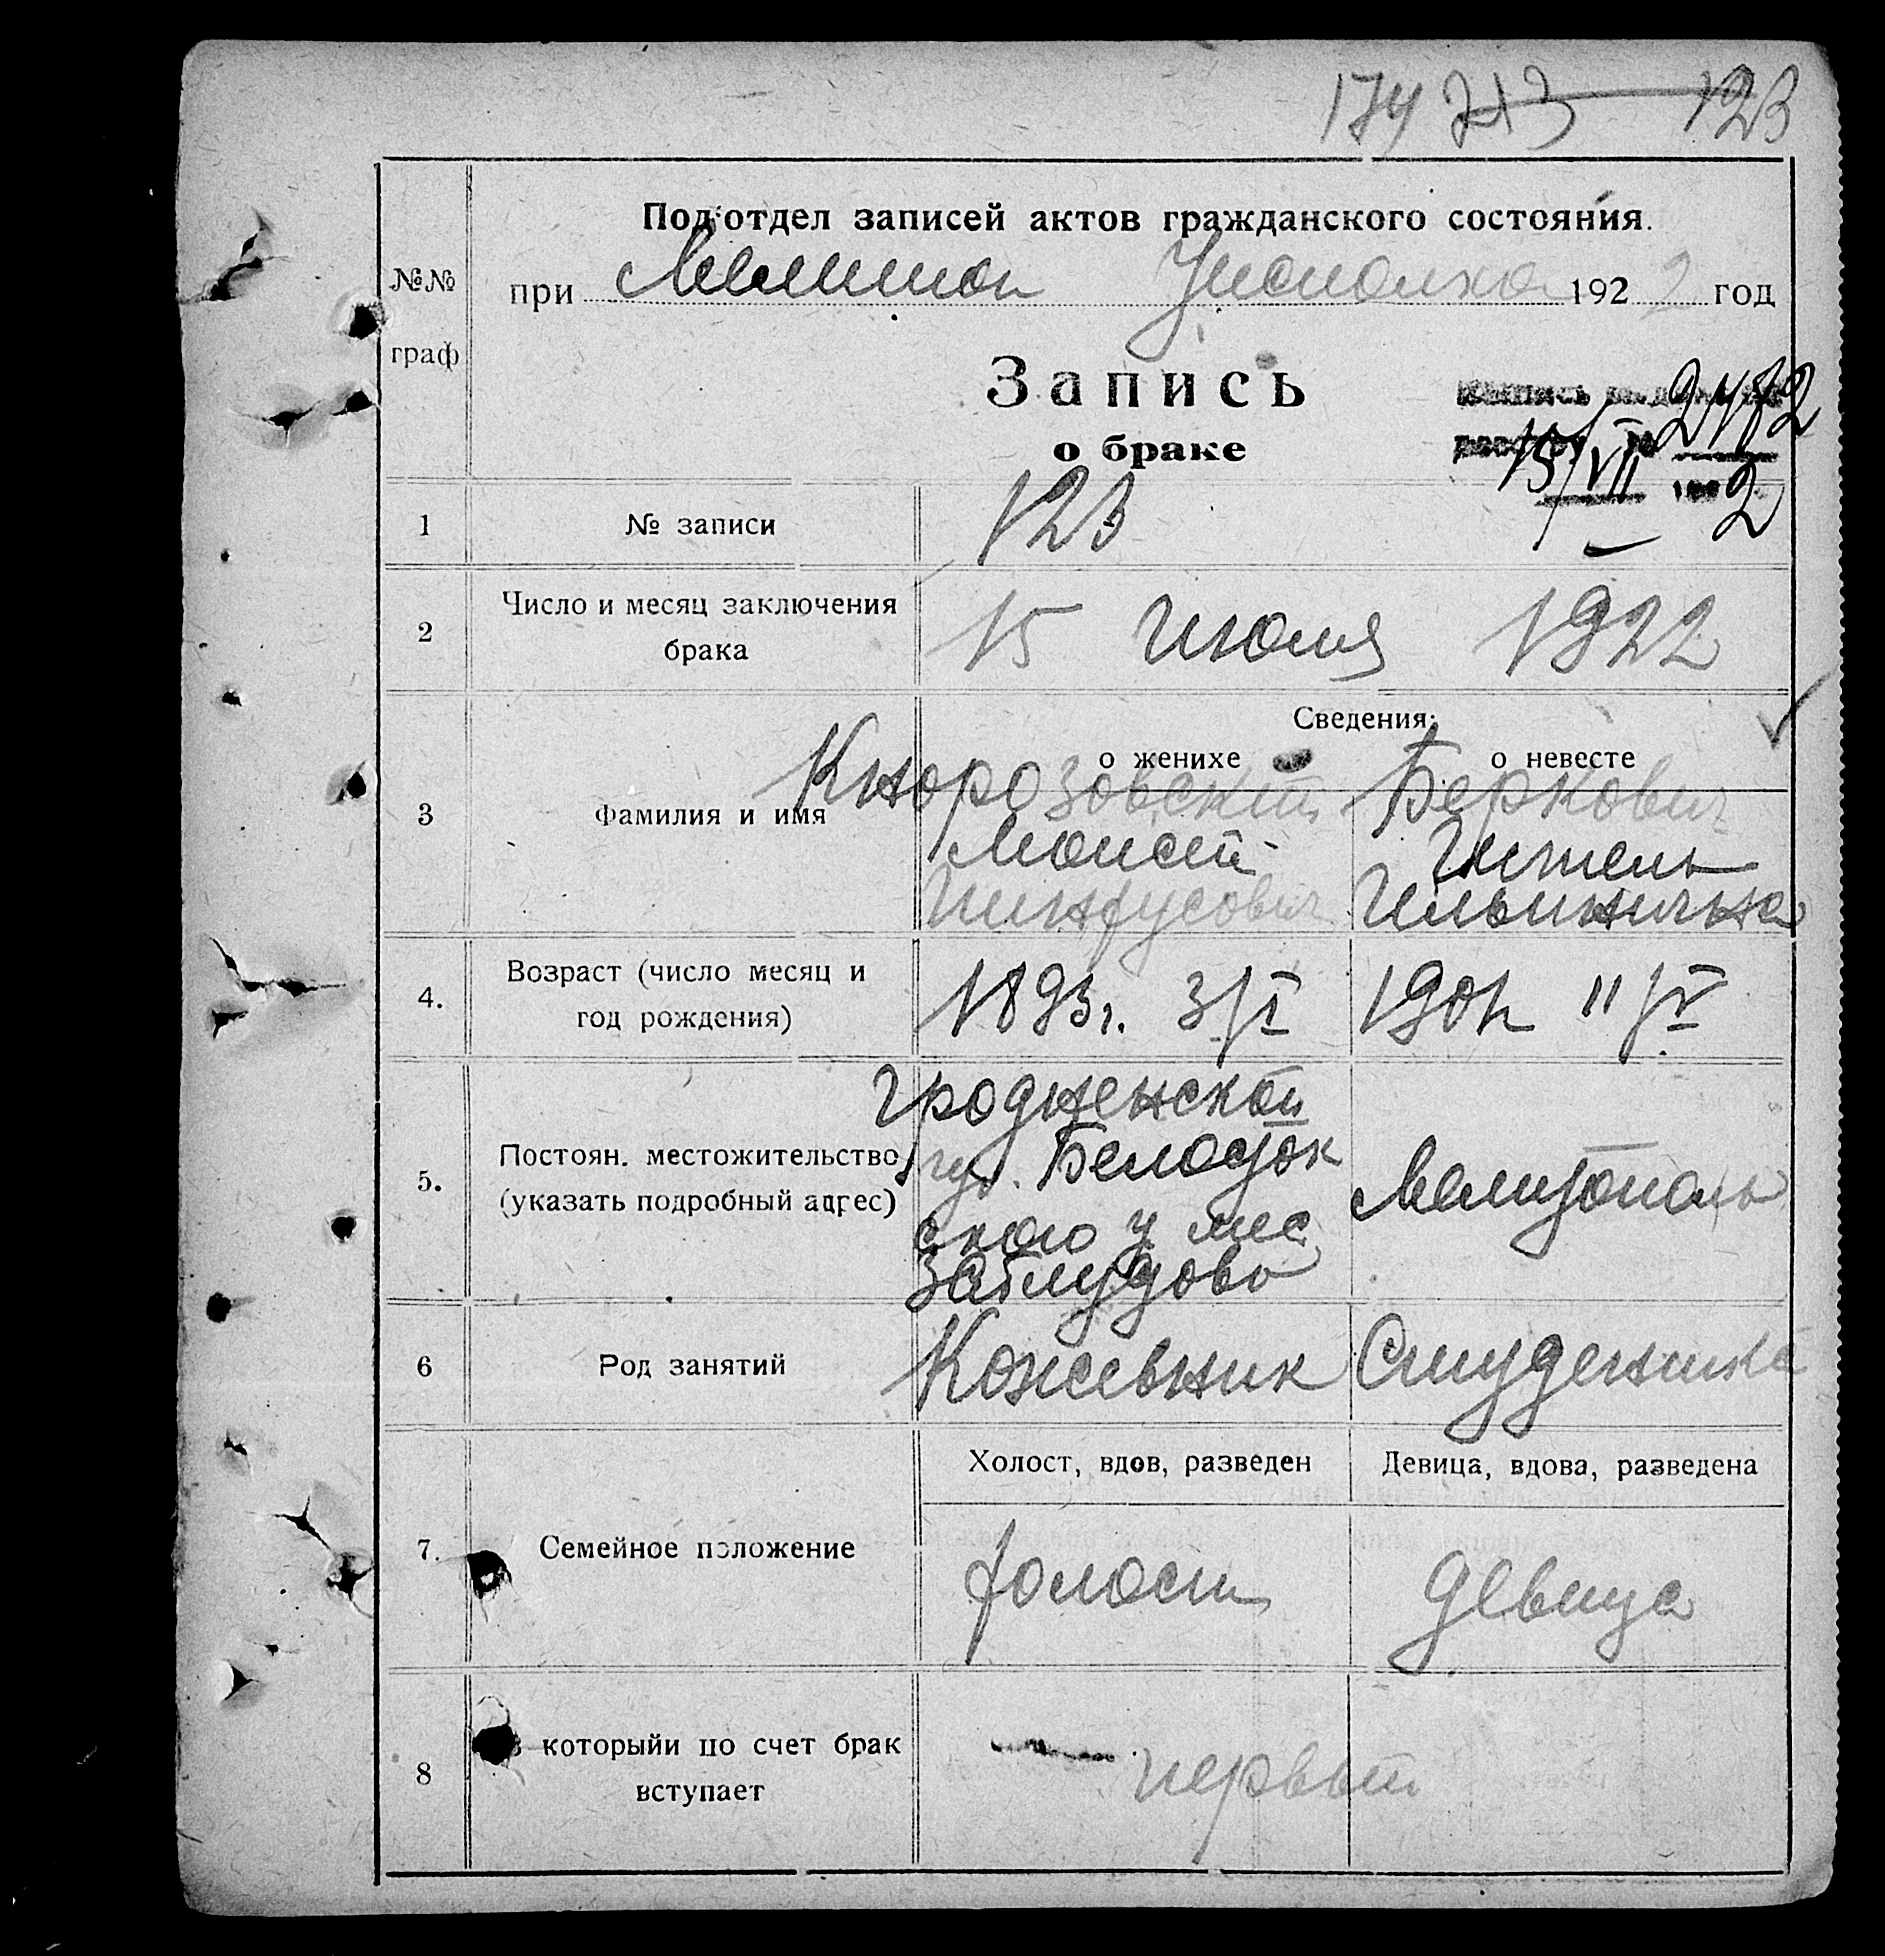 174 213 123
Подотдел записей актов гражданского состояния.
№№
граф
при Мелитоп Уисполко 1922 год
Запись
о браке
2472
15/VII 2
1 № записи 123
2 Число и месяц заключения
брака
15 Июля 1922
Сведения:
о женихе о невесте
3 Фамилия и имя
Кнорозовский Беркович
Моисей Гитель
Пинхусович Ильинична
4. Возраст (число месяц и
год рождения)
1893г. 3/I 190 11/IV
5. Постоян. местожительство
(указать подробный адрес)
Гродненской
губ. Белосток
ского у мес
Заблудово
Мелитополь
6 Род занятий Кожевник Студентка
Холост, вдов, разведен Девица, вдова, разведена
7. Семейное положение холост девица
8 которыйи по счет брак
вступает
первый